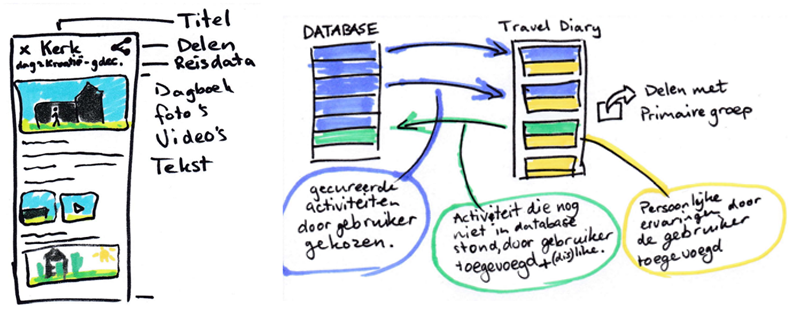 Titel
x Kerk
Delen
dag 2 Kroatië - 9 dec.
Reisdata
Dagboek
foto's
Video's
Tekst
DATABASE
Travel Diary
Delen met
Primaire groep
gecureerde
activiteiten
door gebruiker
gekozen.
Activiteit die nog
niet in database
stond, door gebruiker
toegevoegd + (dis)like.
Persoonlijke
ervaringen door
de gebruiker
toegevoegd